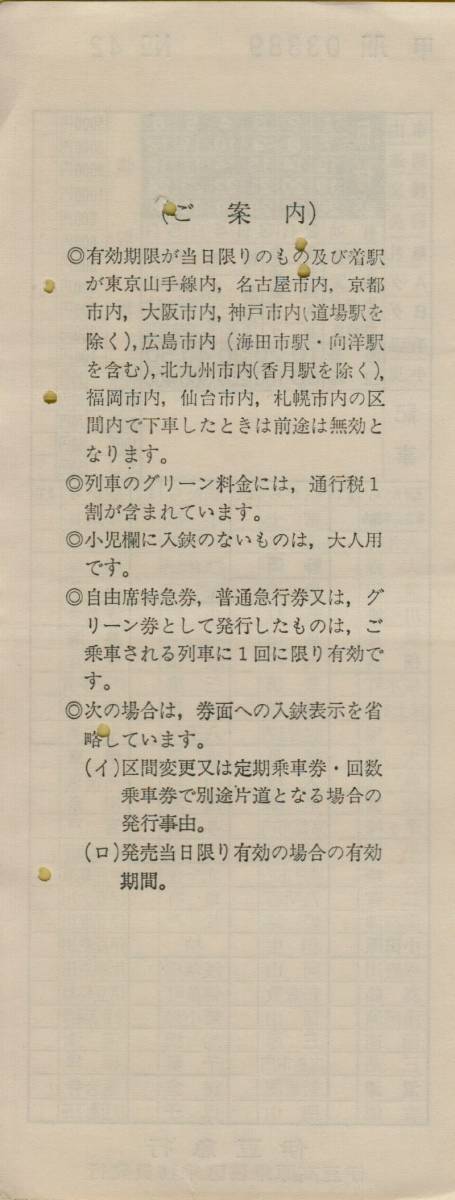 (ご案内)
◎有効期限が当日限りのもの及び着駅
が東京山手線内，名古屋市内，京都
市内，大阪市内，神戸市内(道場駅を
除く)，広島市内（海田市駅・向洋駅
を含む)，北九州市内(香月駅を除く)，
福岡市内，仙台市内，札幌市内の区
間内で下車したときは前途は無効と
なります。
◎列車のグリーン料金には，通行税1
割が含まれています。
◎小児欄に入鋏のないものは，大人用
です。
◎自由席特急券，普通急行券又は，グ
リーン券として発行したものは，ご
乗車される列車に1回に限り有効で
す。
◎次の場合は，券面への入鋏表示を省
略しています。
(イ)区間変更又は定期乗車券・回数
乗車券で別途片道となる場合の
発行事由。
(ロ)発売当日限り有効の場合の有効
期間。